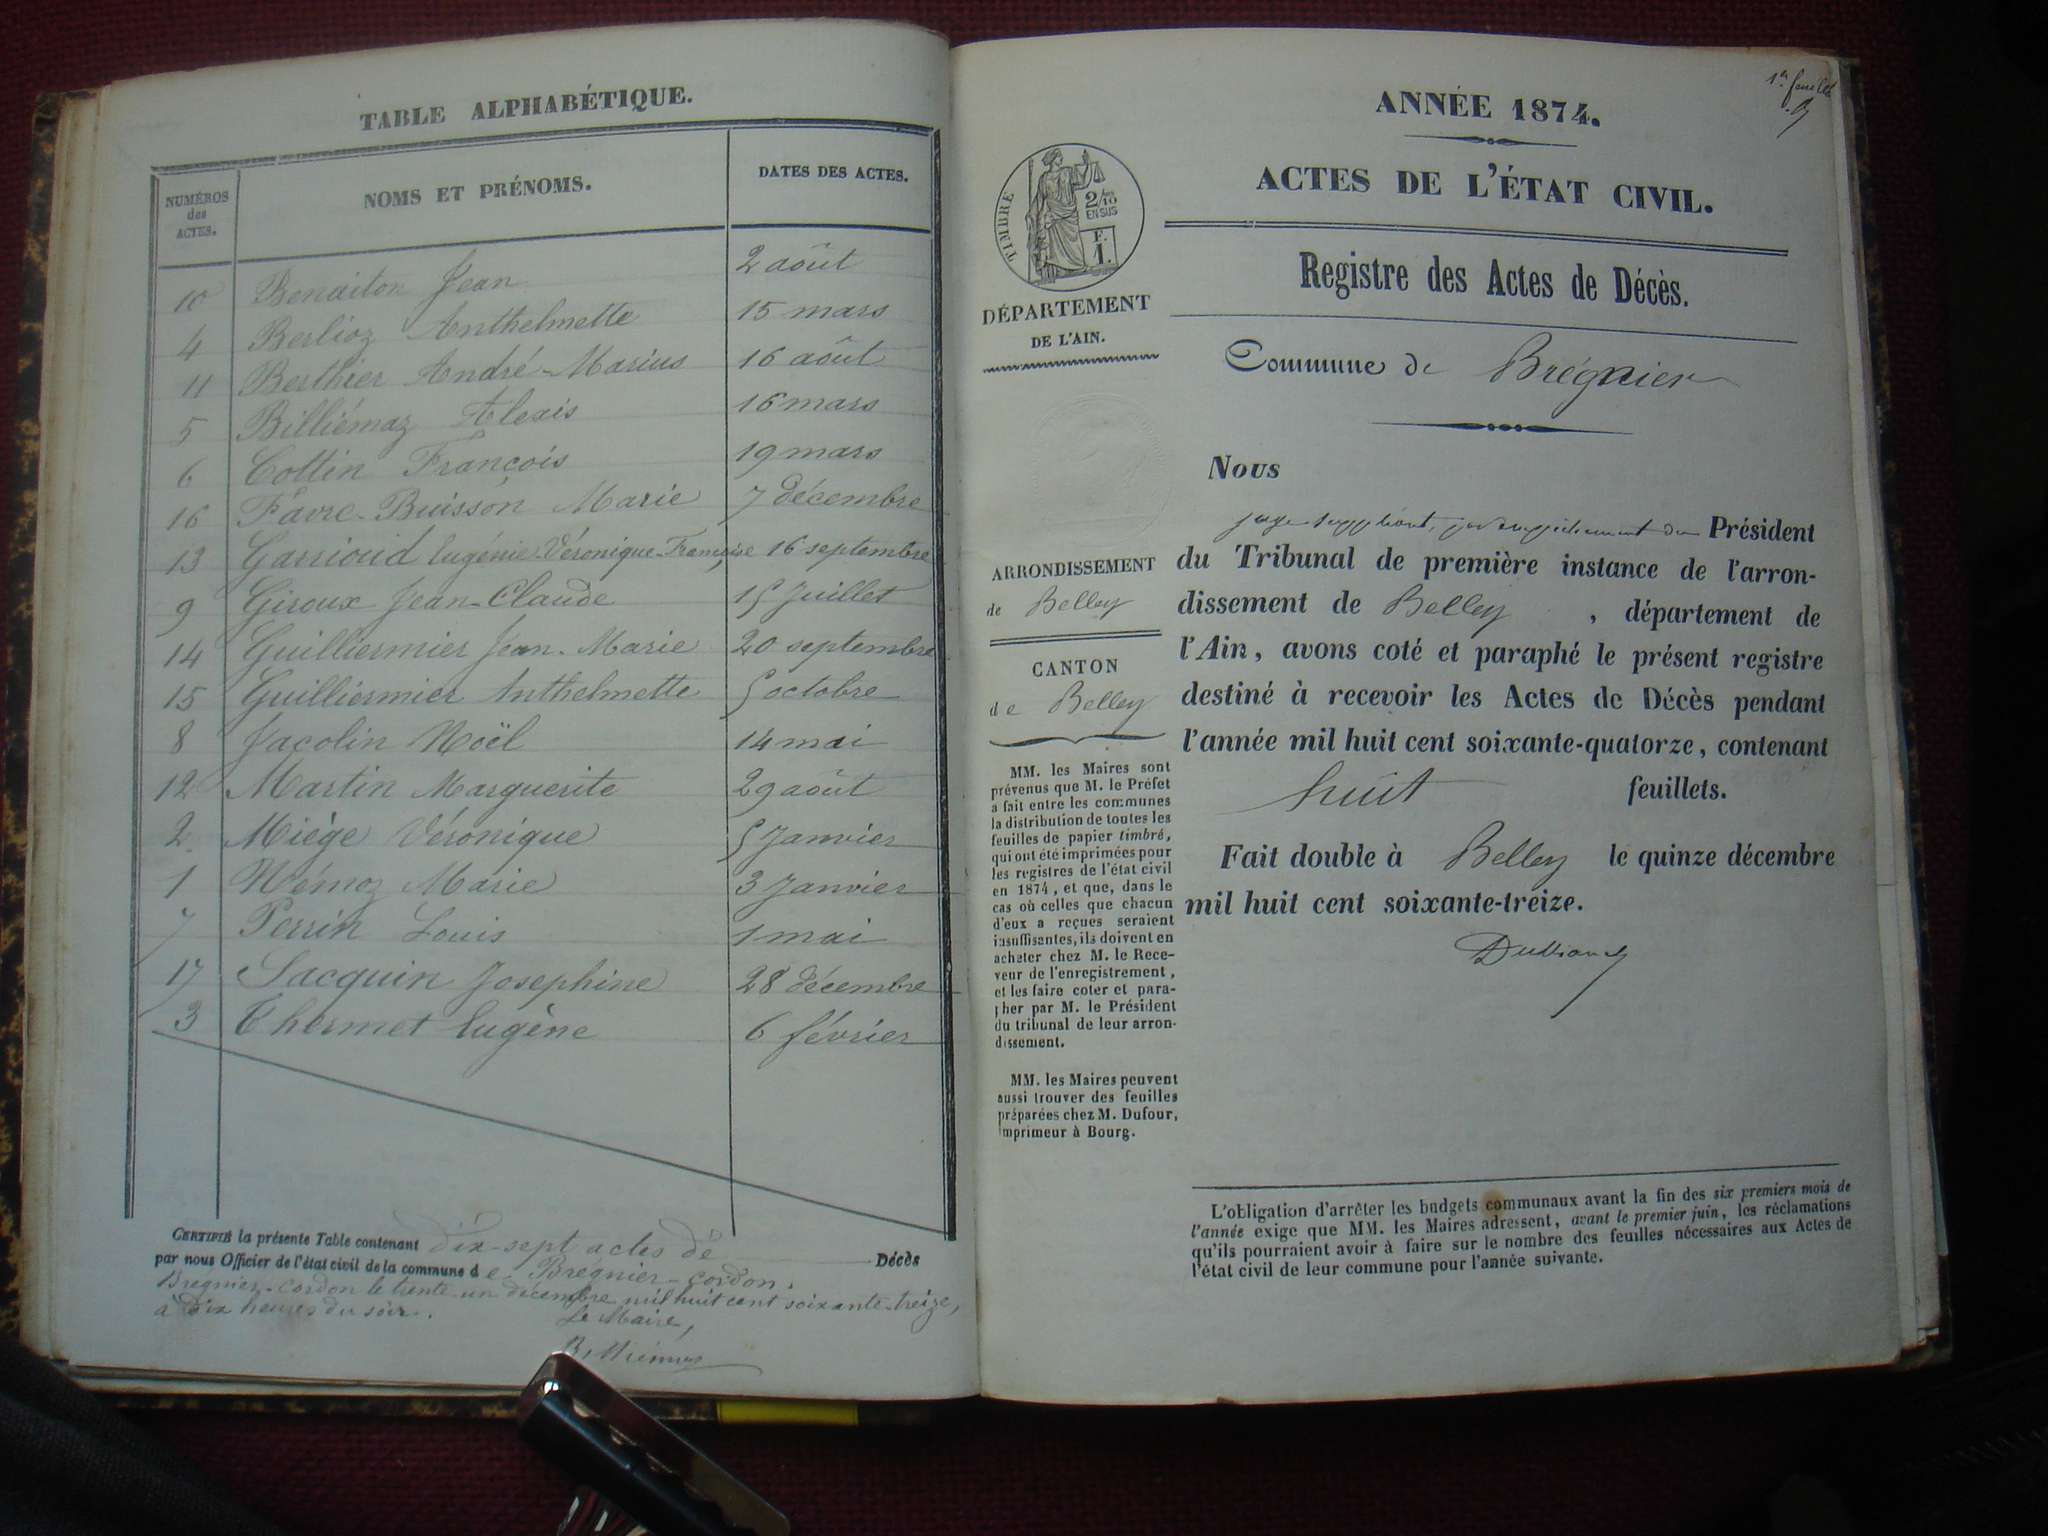 TABLE ALPHABÉTIQUE.
NUMÉROS des ACTES. NOMS ET PRÉNOMS. DATES DES ACTES.
10 Benaiton Jean 2 août
4 Berlioz Anthelmette 15 mars
11 Berthier André-Marius 16 août
5 Billiémaz Alexis 16 mars
6 Cottin François 19 mars
16 Favre-Buisson Marie 7 décembre
13 Garrioud Eugénie-Véronique-Françoise 16 septembre
9 Giroux Jean-Claude 15 Juillet
14 Guilliermier Jean-Marie 20 septembre
15 Guilliermier Anthelmette 5 octobre
8 Jacolin Noël 14 mai
12 Martin Marguerite 29 août
2 Miège Véronique 5 Janvier
1 Némoz Marie 3 Janvier
7 Perrin Louis 1 mai
17 Sacquin Josephine 28 décembre
3 Thermet Eugène 6 février
CERTIFIÉ la présente Table contenant dix-sept actes de Décès
par nous Officier de l'état civil de la commune de Bregnier-cordon.
Bregnier-cordon le trente-un décembre mil huit cent soixante-treize,
à dix heures du soir.
Le Maire,
1er feuillet
ANNÉE 1874.
ACTES DE L'ÉTAT CIVIL.
Registre des Actes de Décès.
Commune de Brégnier
TIMBRE
2/10
EN SUS
F.
1.
DÉPARTEMENT
DE L'AIN.
ARRONDISSEMENT
de Belley
CANTON
de Belley
MM. les Maires sont
prévenus que M. le Préfet
a fait entre les communes
la distribution de toutes les
feuilles de papier timbré,
qui ont été imprimées pour
les registres de l'état civil
en 1874, et que, dans le
cas où celles que chacun
d'eux a reçues seraient
insuffisantes, ils doivent en
acheter chez M. le Rece-
veur de l'enregistrement,
et les faire coter et para-
pher par M. le Président
du tribunal de leur arron-
dissement.
MM. les Maires peuvent
aussi trouver des feuilles
préparées chez M. Dufour,
imprimeur à Bourg.
Nous
juge suppléant, par empêchement du Président
du Tribunal de première instance de l'arron-
dissement de Belley, département de
l'Ain, avons coté et paraphé le présent registre
destiné à recevoir les Actes de Décès pendant
l'année mil huit cent soixante-quatorze, contenant
huit feuillets.
Fait double à Belley le quinze décembre
mil huit cent soixante-treize.
L'obligation d'arrêter les budgets communaux avant la fin des six premiers mois de
l'année exige que MM. les Maires adressent, avant le premier juin, les réclamations
qu'ils pourraient avoir à faire sur le nombre des feuilles nécessaires aux Actes de
l'état civil de leur commune pour l'année suivante.